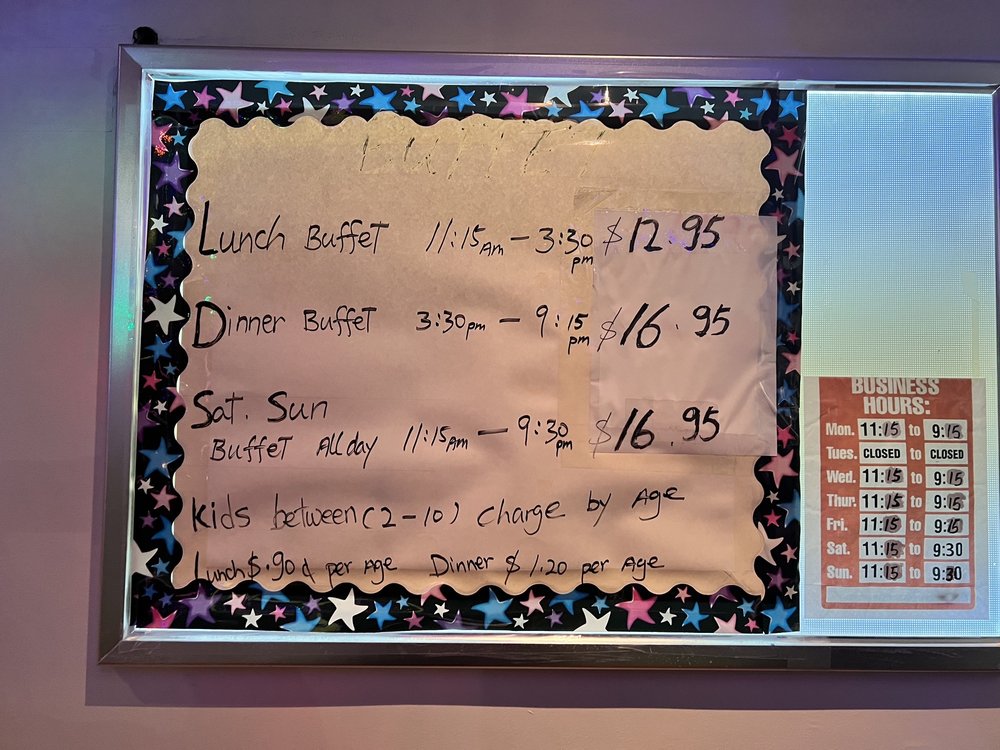 BUFFET
Lunch Buffet 11:15 Am - 3:30 pm $12.95
Dinner Buffet 3:30 pm - 9:15 pm $16.95
Sat. Sun
Buffet All day 11:15 Am - 9:30 pm $16.95
Kids between (2-10) charge by Age
Lunch $.90¢ per Age Dinner $1.20 per Age
BUSINESS
HOURS:
Mon. 11:15 to 9:15
Tues. CLOSED to CLOSED
Wed. 11:15 to 9:15
Thur. 11:15 to 9:15
Fri. 11:15 to 9:15
Sat. 11:15 to 9:30
Sun. 11:15 to 9:30